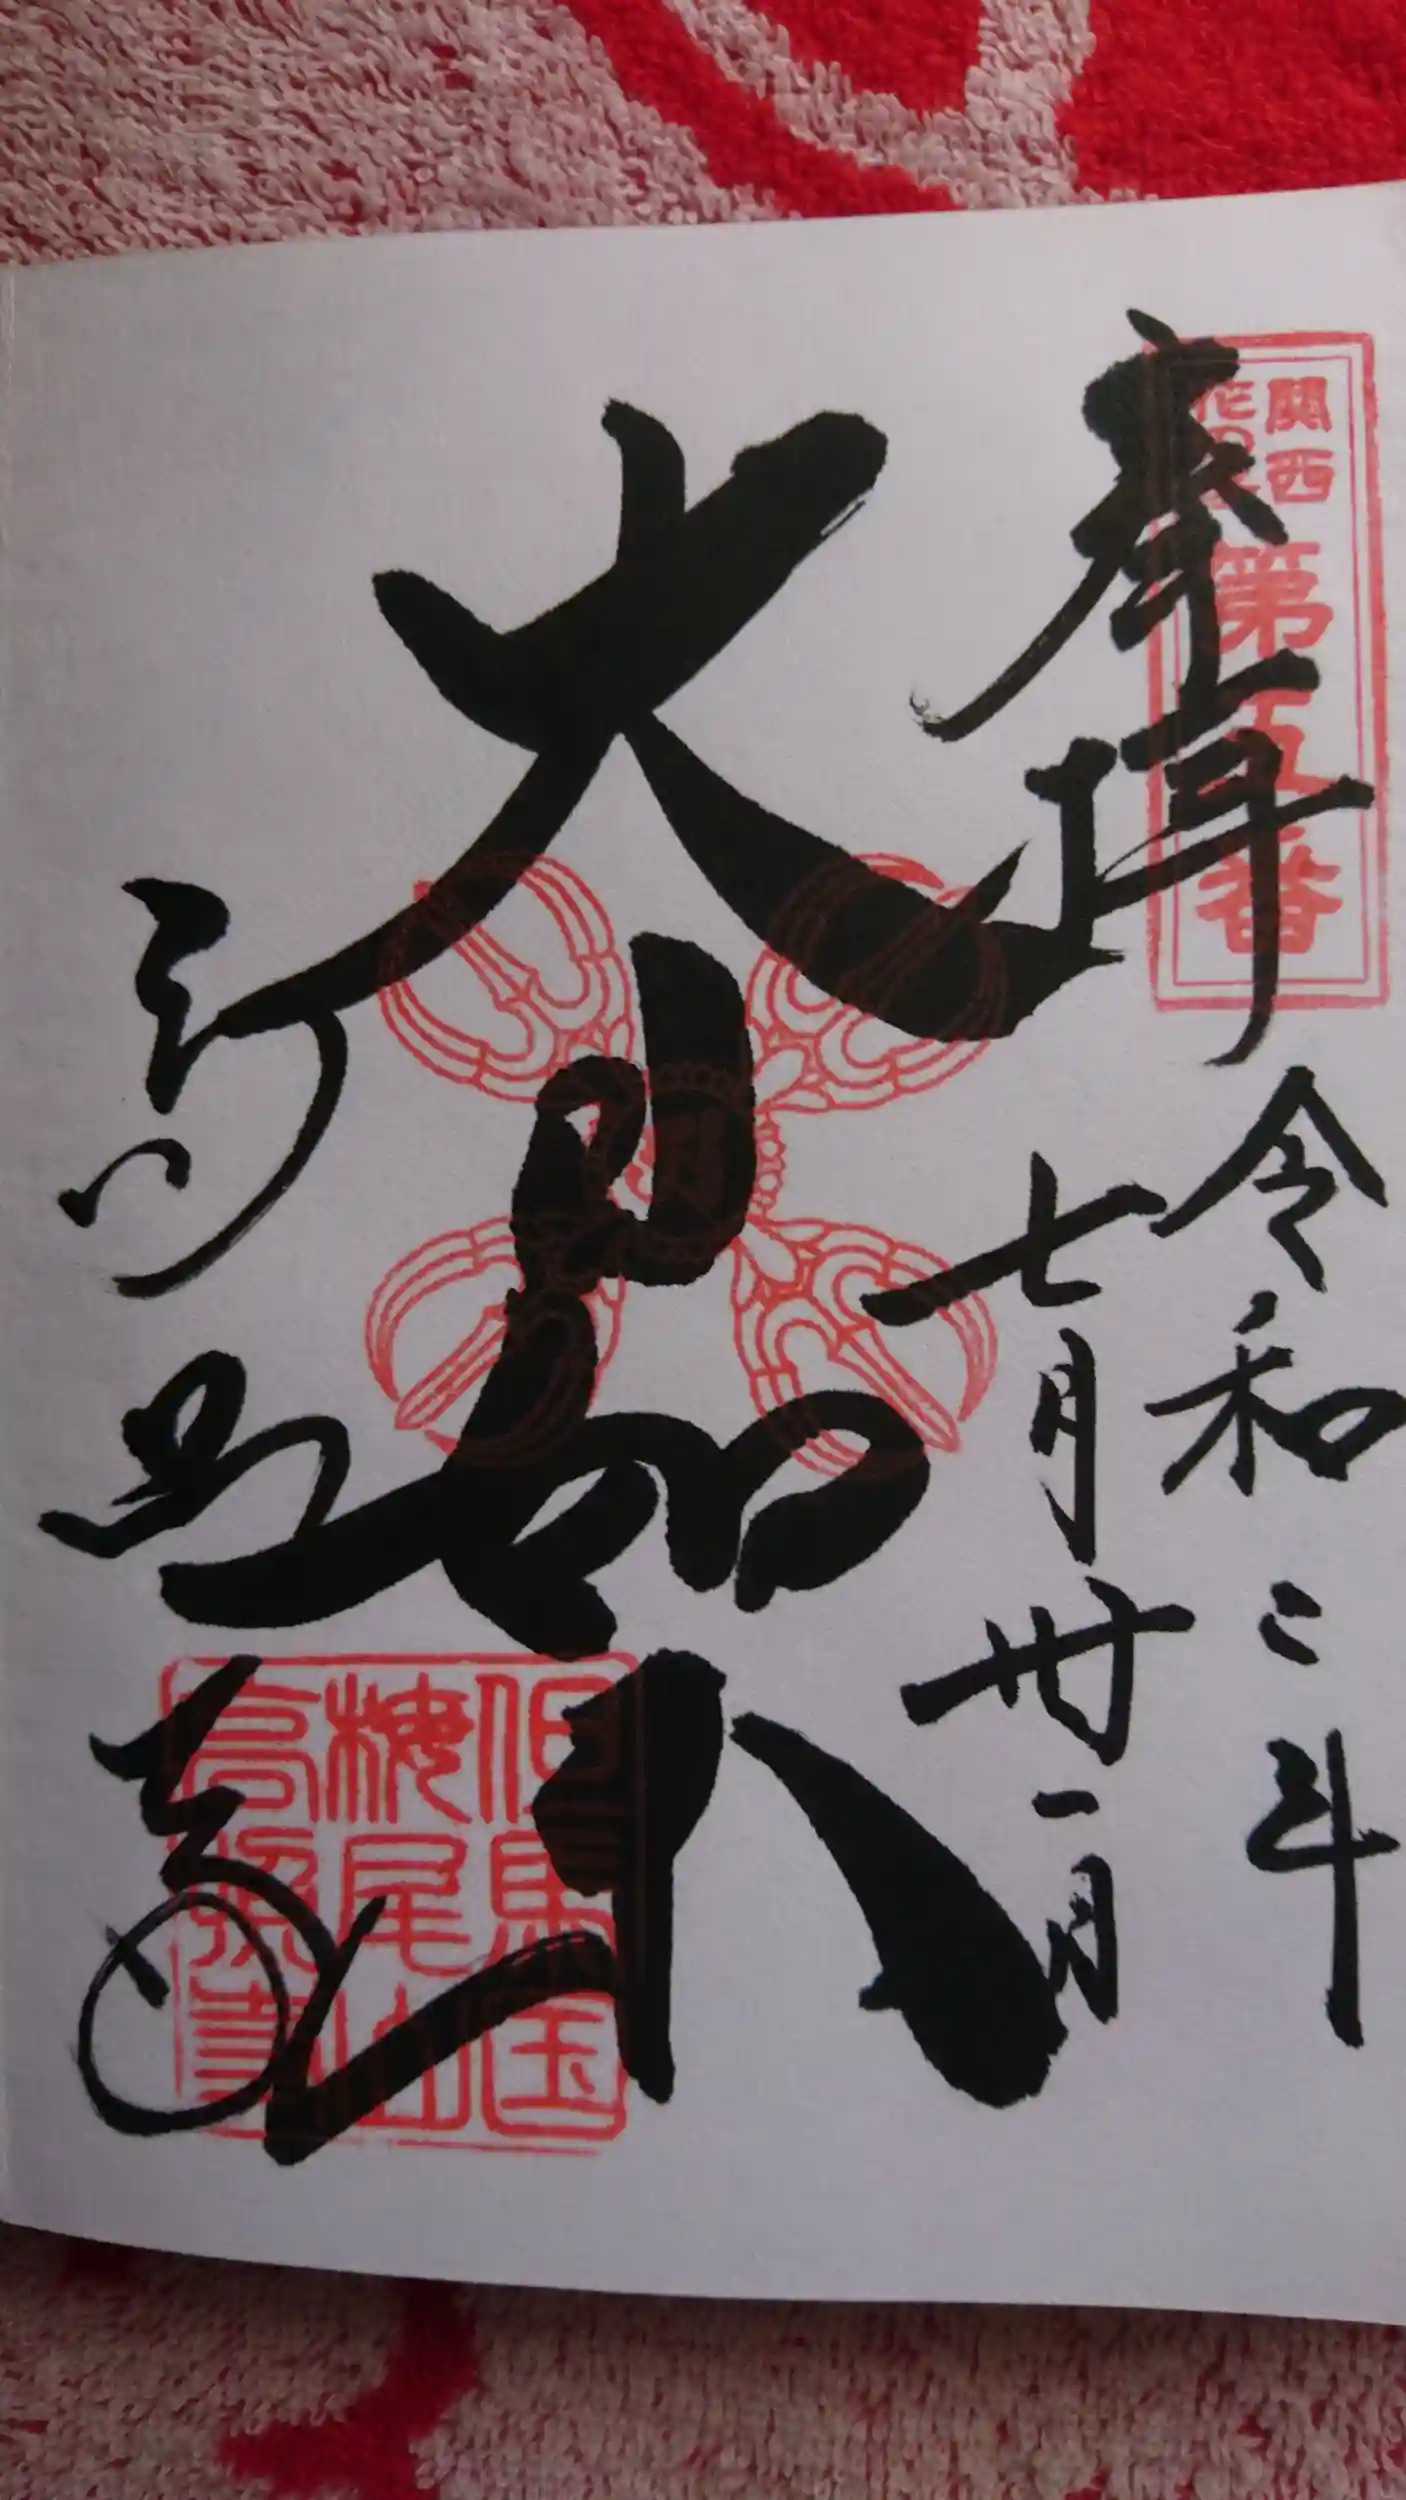 奉拝
関西
花の寺
第五番
令和三年
七月卅一日
大日如来
高照寺
但馬国
樓尾山
高照寺